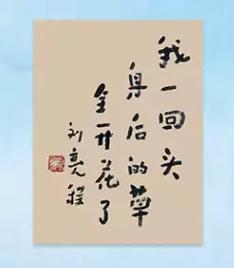 我一回头
身后的草
全开花了
刘亮程